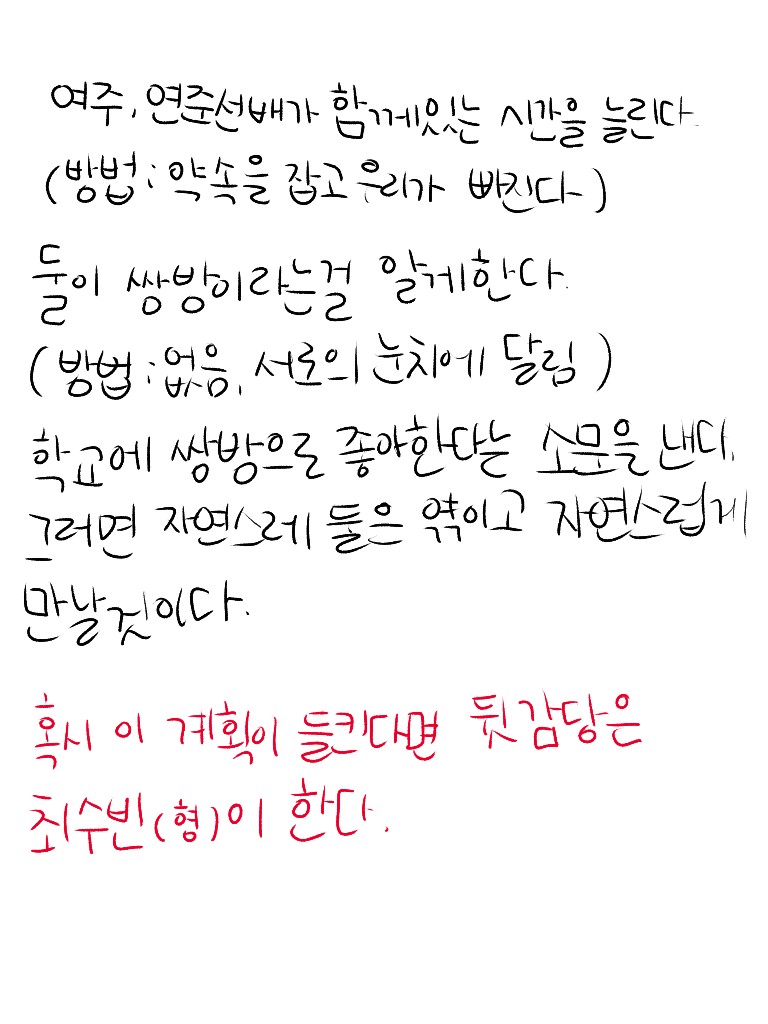 여주, 연준선배가 함께있는 시간을 늘린다.
(방법: 약속을 잡고 우리가 빠진다)
둘이 쌍방이라는걸 알게한다.
(방법: 없음, 서로의 눈치에 달림)
학교에 쌍방으로 좋아한다는 소문을 낸다.
그러면 자연스레 둘은 엮이고 자연스럽게
만날것이다.
혹시 이 계획이 들킨다면 뒷감당은
최수빈(형)이 한다.